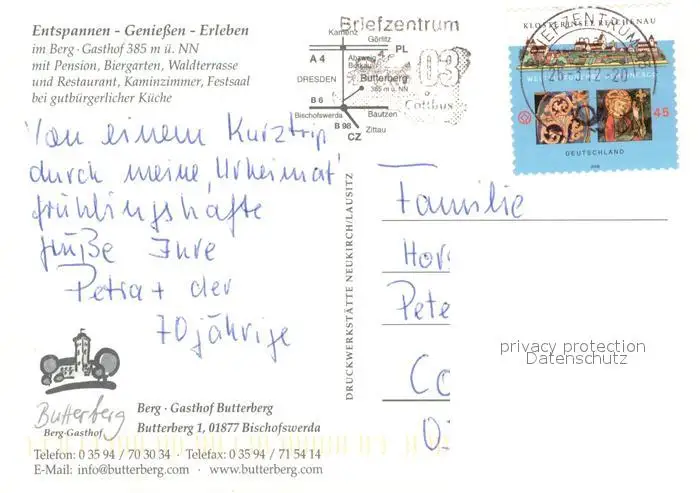 Entspannen - Genießen - Erleben
im Berg · Gasthof 385 m ü. NN
mit Pension, Biergarten, Waldterrasse
und Restaurant, Kaminzimmer, Festsaal
bei gutbürgerlicher Küche
Von einem Kurztrip
durch meine 'Urheimat'
frühlingshafte
Grüße Ihre
Petra + der
70jährige
Butterberg
Berg-Gasthof
Berg · Gasthof Butterberg
Butterberg 1, 01877 Bischofswerda
Telefon: 0 35 94 / 70 30 34 · Telefax: 0 35 94 / 71 54 14
E-Mail: info@butterberg.com · www.butterberg.com
DRUCKWERKSTÄTTE NEUKIRCH/LAUSITZ
Briefzentrum
03
Cottbus
Kamenz
Görlitz
A 4
4
PL
Abzweig
DRESDEN
Butterberg
385 m ü. NN
B 6
Bischofswerda
Bautzen
B 98
Zittau
CZ
KLOSTERINSEL REICHENAU
45
DEUTSCHLAND
2008
Familie
Hor
Pete
Co
0
privacy protection
Datenschutz